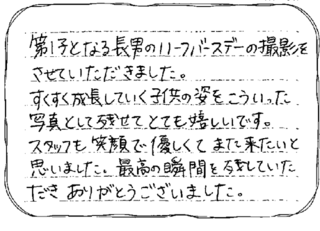 第1子となる長男のハーフバースデーの撮影を
させていただきました。
すくすく成長していく子供の姿をこういった
写真として残せてとても嬉しいです。
スタッフも笑顔で優しくてまた来たいと
思いました。最高の瞬間を残していた
だきありがとうございました。